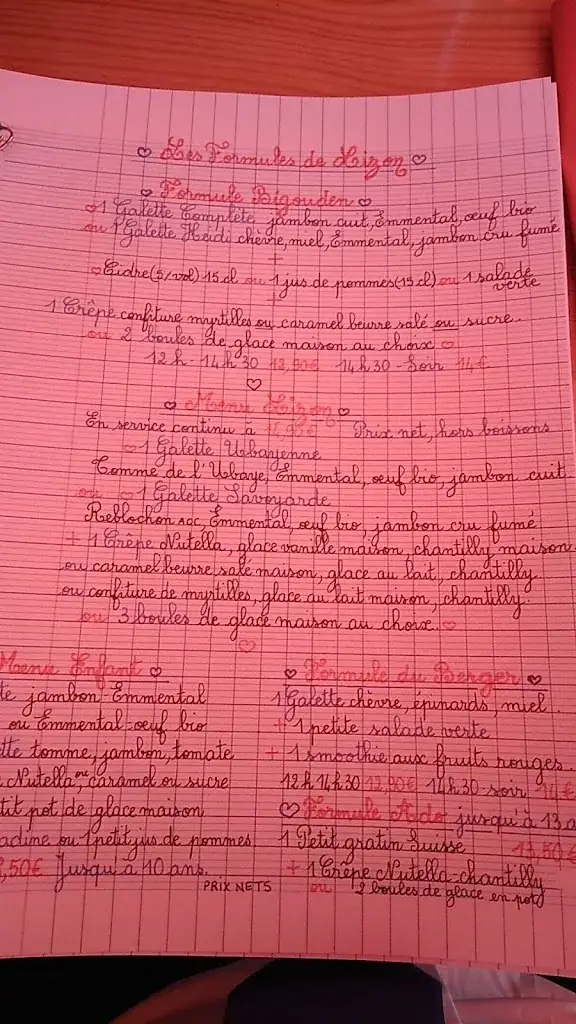 Les Formules de Lizon
Formule Bigouden
1 Galette Complète jambon cuit, Emmental, œuf bio
ou 1 Galette Heidi chèvre, miel, Emmental, jambon cru fumé
+
Cidre (5%vol) 15 cl ou 1 jus de pommes (15 cl) ou 1 salade verte
+
1 Crêpe confiture myrtilles ou caramel beurre salé ou sucre.
ou 2 boules de glace maison au choix
12 h - 14 h 30 12,90€ 14 h 30 - Soir 14€
Menu Lizon
En service continu à Prix net, hors boissons
1 Galette Ubayenne
Tomme de l'Ubaye, Emmental, œuf bio, jambon cuit
ou 1 Galette Savoyarde
Reblochon AOC, Emmental, œuf bio, jambon cru fumé
+ 1 Crêpe Nutella, glace vanille maison, chantilly maison
ou caramel beurre salé maison, glace au lait, chantilly
ou confiture de myrtilles, glace au lait maison, chantilly.
ou 3 boules de glace maison au choix.
Menu Enfant
te jambon-Emmental
ou Emmental-œuf bio
tte tomme, jambon, tomate
Nutella, ou caramel ou sucre
tit pot de glace maison
adine ou 1 petit jus de pommes
,50€ Jusqu'à 10 ans.
PRIX NETS
Formule du Berger
1 Galette chèvre, épinards, miel.
+ 1 petite salade verte
+ 1 smoothie aux fruits rouges.
12h 14h30 12,90€ 14h30-soir 14€
Formule Ado jusqu'à 13 a
1 Petit gratin Suisse 13,50€
+ 1 Crêpe Nutella-chantilly
ou 2 boules de glace en pot